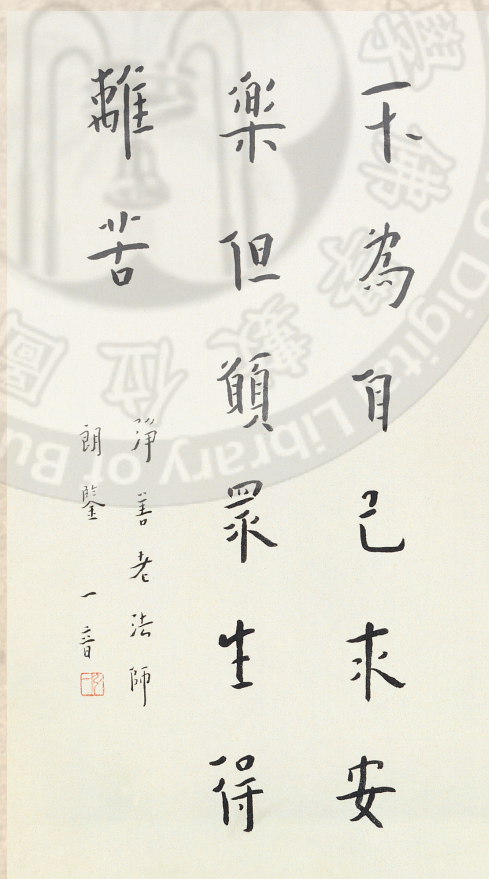 不為自己求安
樂但願眾生得
離苦
淨善老法師
朗鑒 一音
學佛
數位圖
Digital Library of Bu